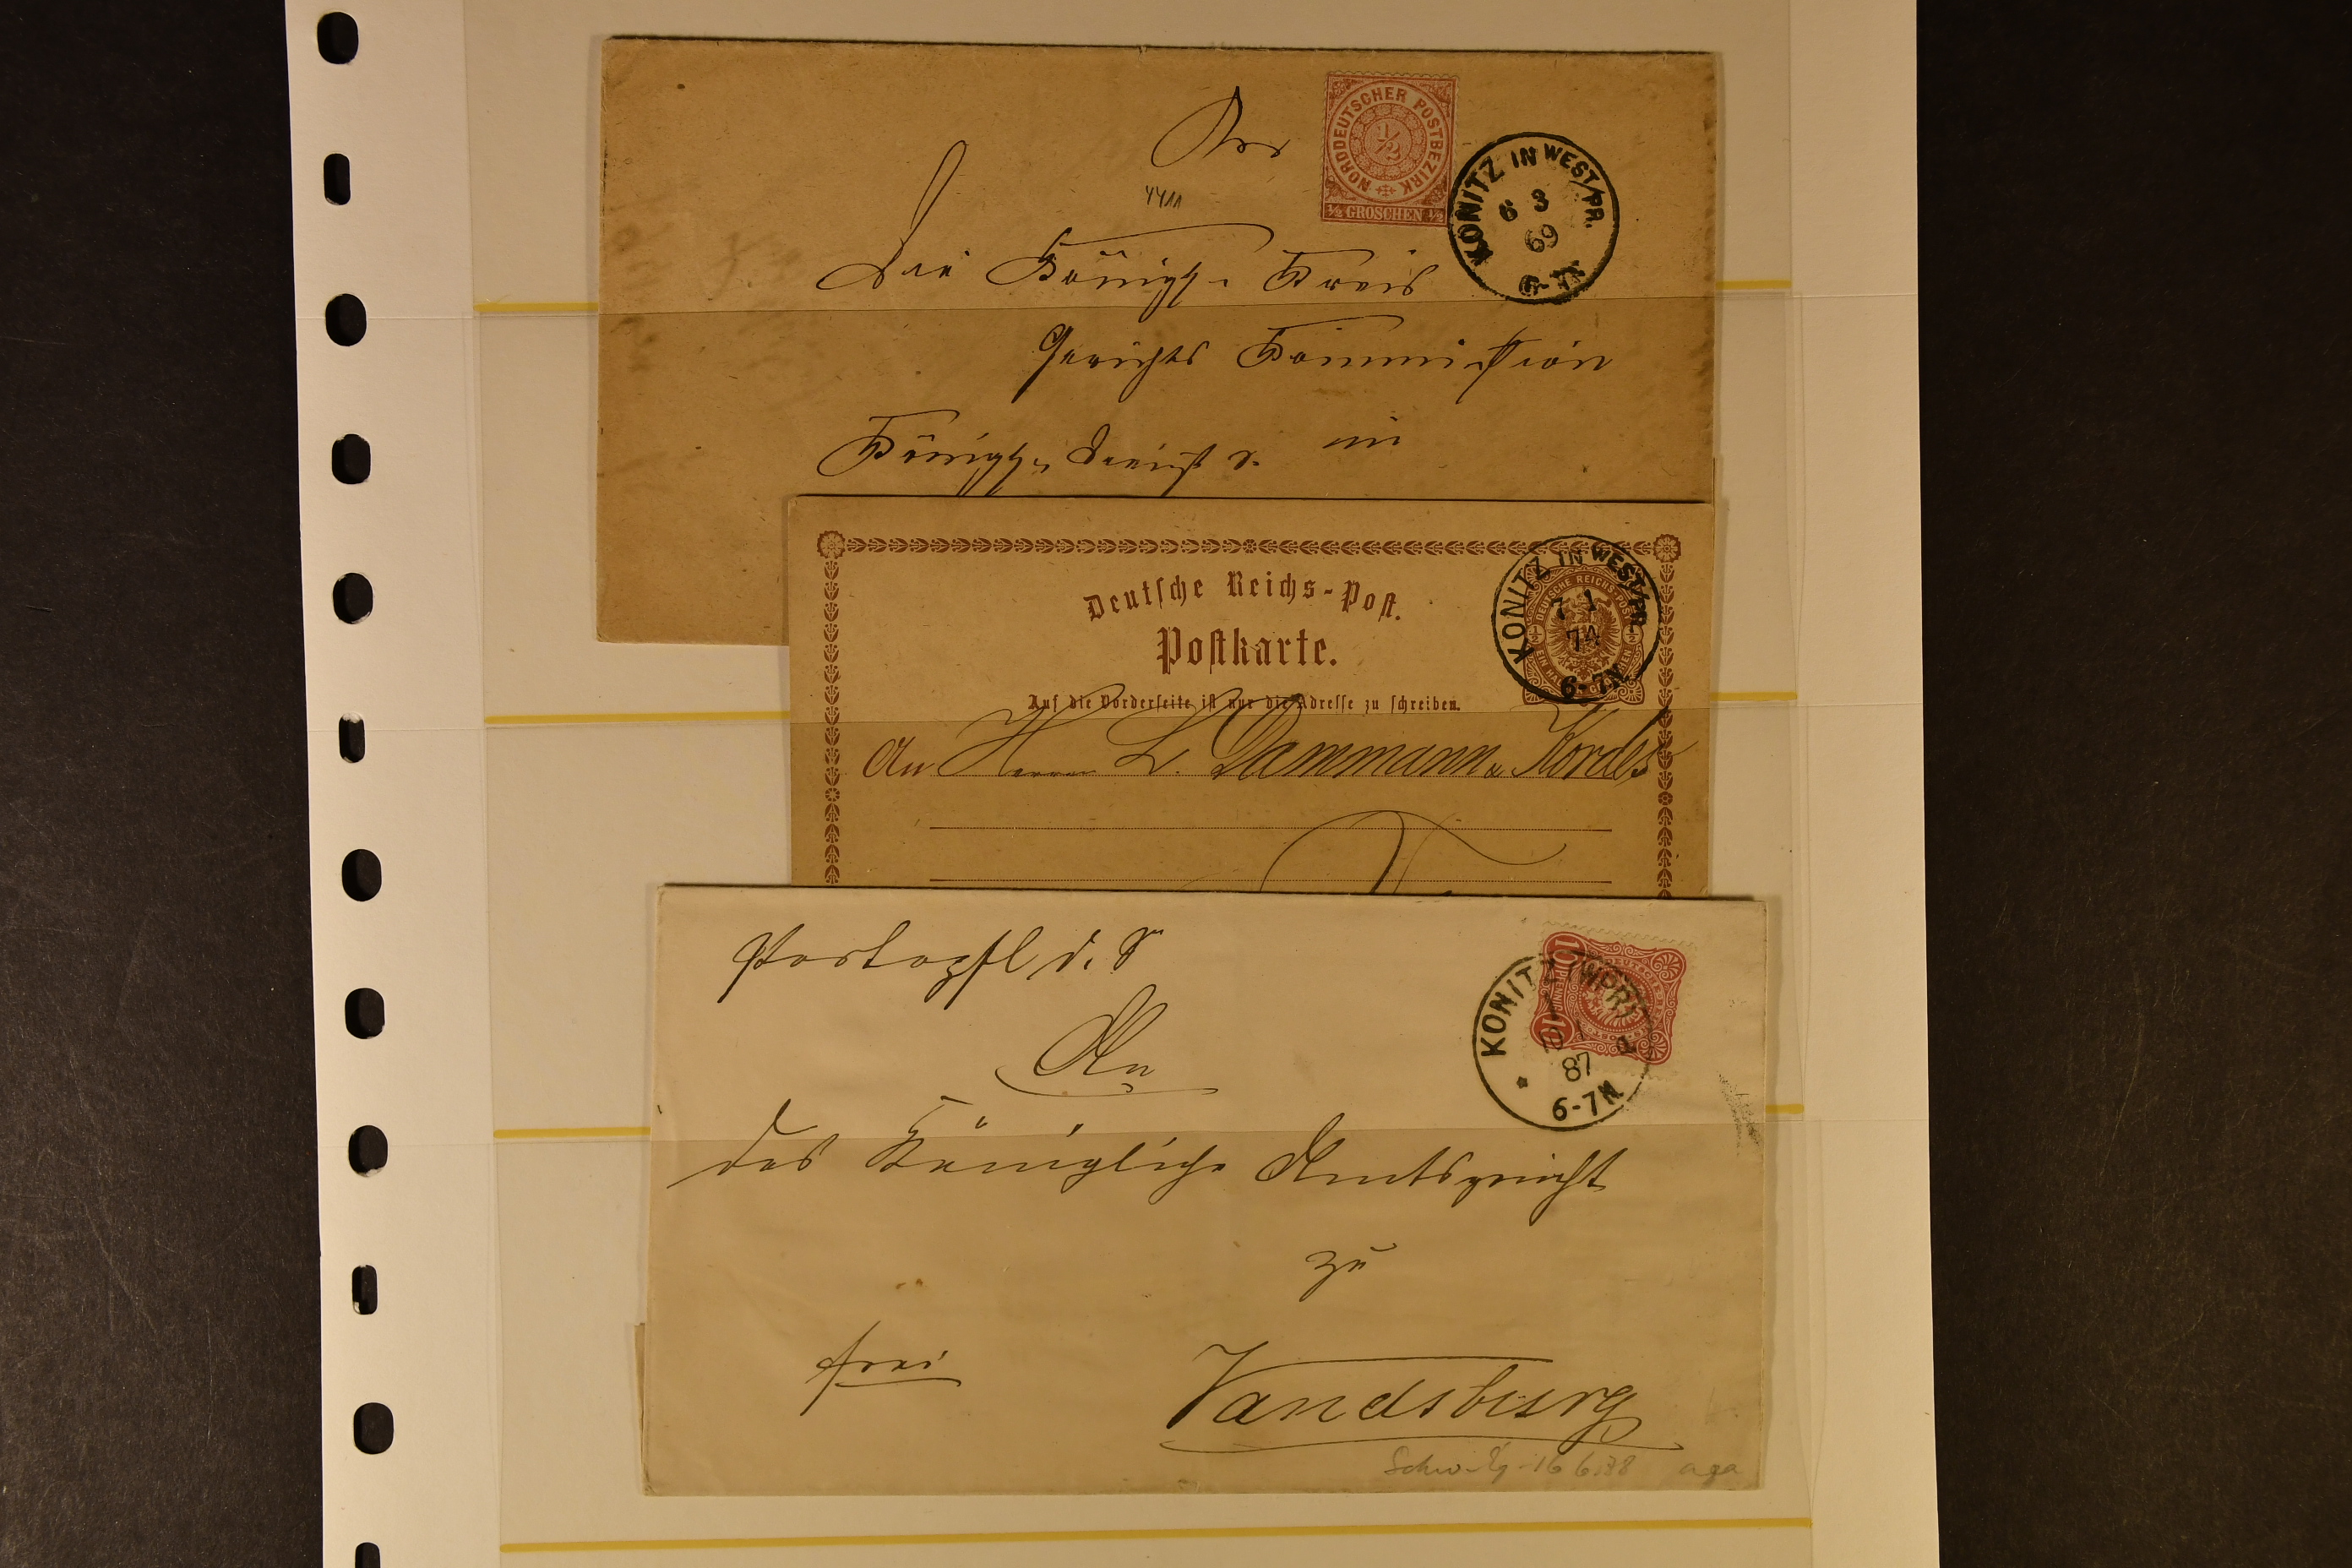 An
NORDDEUTSCHER POSTBEZIRK
1/2
1/2 GROSCHEN 1/2
KONITZ IN WEST/PR.
6 3
69
6-7N
4411
Die Königl. Kreis
Gerichts Commission
in
Königl. Dienst S.
Deutsche Reichs-Post.
Postkarte.
Auf die Vorderseite ist nur die Adresse zu schreiben.
DEUTSCHE REICHS-POST
KONITZ IN WEST/PR.
7 1
74
6-7N
An Herrn L. Dammann & Kordes
Portopfl. D. S.
10 10
KONITZ (WPR)
87
6-7N
An
das Königliche Amtsgericht
zu
frei
Vandsburg